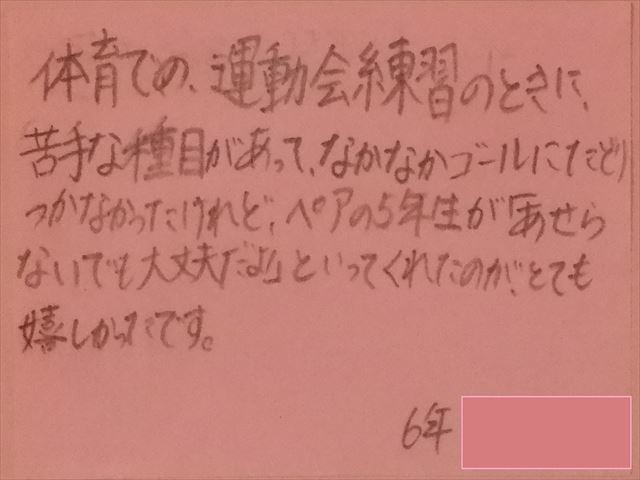 体育での、運動会練習のときに、
苦手な種目があって、なかなかゴールにたどり
つかなかったけれど、ペアの5年生が「あせら
ないでも大丈夫だよ」といってくれたのが、とても
嬉しかったです。
6年